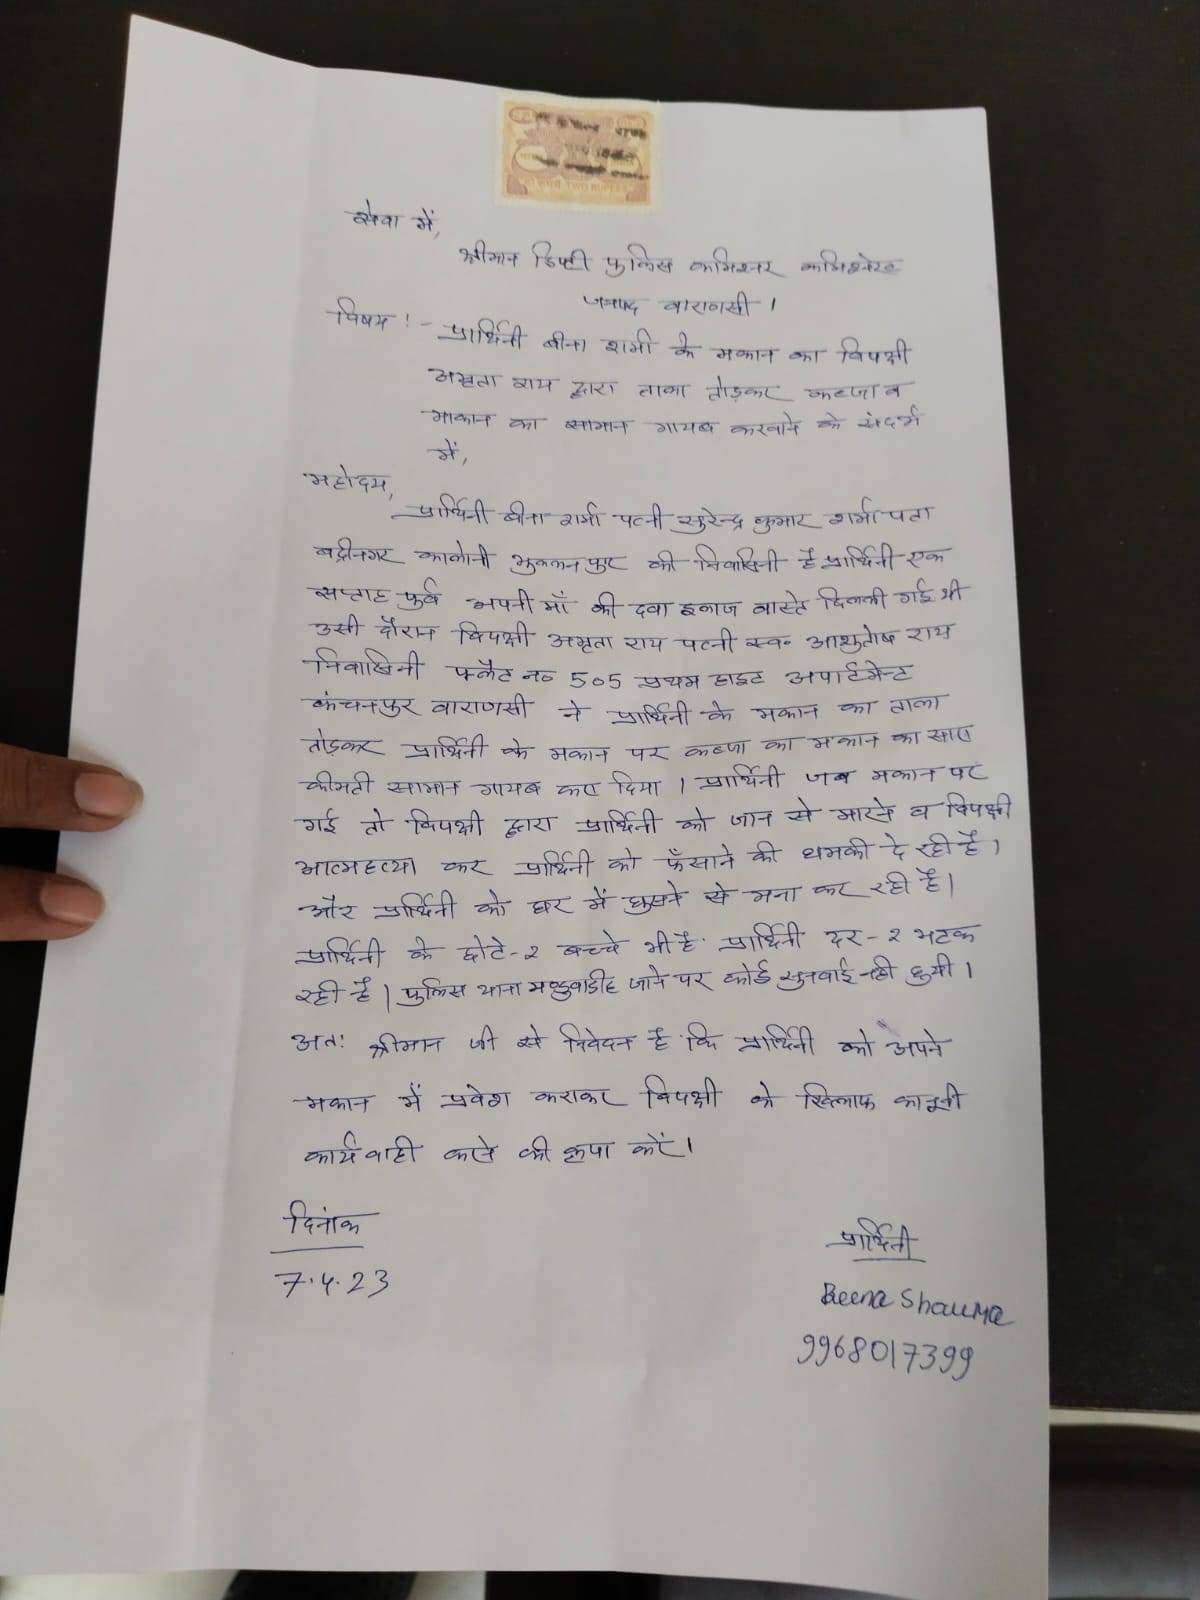 TWO RUPEES
सेवा में,
श्रीमान डिप्टी पुलिस कमिश्नर कमिश्नरेट
जनपद वाराणसी।
विषय :- प्रार्थिनी बीना शर्मा के मकान का विपक्षी
अमृता राय द्वारा ताला तोड़कर कब्जा व
माकान का सामान गायब करवाने के संदर्भ
में,
महोदय,
प्रार्थिनी बीना शर्मा पत्नी सुरेन्द्र कुमार शर्मा पता
बद्रीनगर कालोनी भुल्लनपुर की निवासिनी है प्रार्थिनी एक
सप्ताह पुर्व अपनी माँ की दवा इलाज वास्ते दिल्ली गई थी
उसी दौरान विपक्षी अमृता राय पत्नी स्व० आशुतोष राय
निवासिनी फ्लैट न० 505 प्रथम हाइट अपार्टमेन्ट
कंचनपुर वाराणसी ने प्रार्थिनी के मकान का ताला
तोड़कर प्रार्थिनी के मकान पर कब्जा का मकान का सारा
कीमती सामान गायब कर दिया। प्रार्थिनी जब मकान पर
गई तो विपक्षी द्वारा प्रार्थिनी को जान से मारने व विपक्षी
आत्महत्या कर प्रार्थिनी को फँसाने की धमकी दे रही है।
और प्रार्थिनी को घर में घुसने से मना कर रही है।
प्रार्थिनी के छोटे-२ बच्चे भी है प्रार्थिनी दर-२ भटक
रही है। पुलिस थाना मण्डुवाडीह जाने पर कोई सुनवाई नही हुयी।
अतः श्रीमान जी से निवेदन है कि प्रार्थिनी को अपने
मकान में प्रवेश कराकर विपक्षी के खिलाफ कानूनी
कार्यवाही करने की कृपा करें।
दिनांक
7.4.23
प्रार्थिनी
Beena Sharma
9968017399